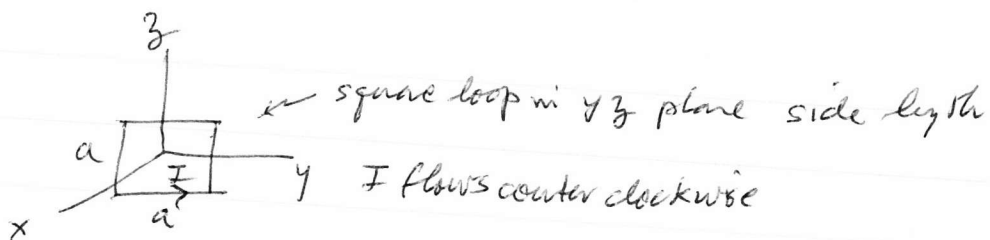 z
square loop in yz plane side length
a
I
y I flows counter clockwise
x
a